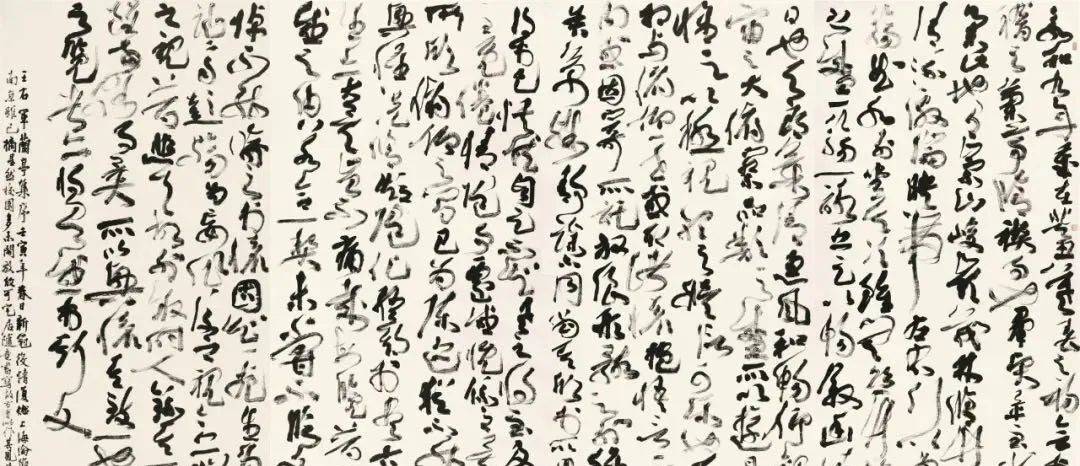 永和九年歲在癸丑暮春之初會
稽之蘭亭脩禊事也群賢畢至
咸集此地有崇山峻領茂林脩竹
清流激湍映帶左右引以
觴曲水列坐其次雖無絲竹
之盛一觴一詠亦足以暢敘幽
日也天朗氣清惠風和暢仰觀
宙之大俯察品類之盛所以遊
懷足以極視聽之娛信可樂也
相與俯仰一世或取諸懷抱悟言
內或因寄所託放浪形骸之外
萬殊靜躁不同當其欣於所
得於己快然自足不知老之將至及
之既倦情隨事遷感慨係之
所欣俛仰之間已為陳迹猶不
興懷況脩短隨化終期於盡
生亦大矣豈不痛哉每覽昔
感之由若合一契未嘗不臨
悼不能喻之於懷固知一死生
誕齊彭殤為妄作後之視今亦
之視昔悲夫故列敘時人錄其
雖世殊事異所以興懷其致一也
之覽者亦將有感於斯文
王右軍蘭亭集序壬寅年春日新冠疫情復燃上海淪
南京雖已摘星然校園多未開放